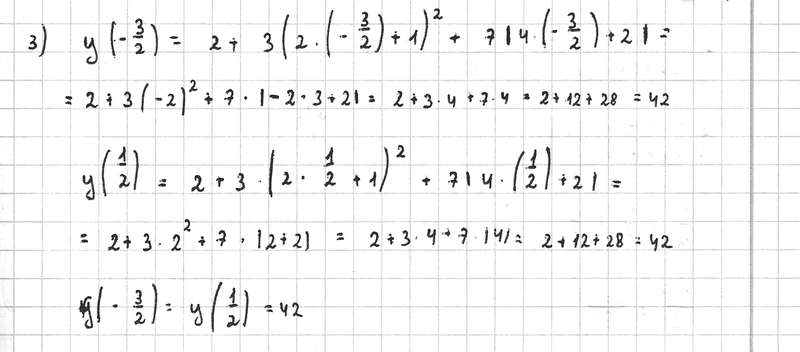 3) y(-3/2) = 2 + 3(2·(-3/2)+1)² + 7|4·(-3/2)+2| =
= 2+3(-2)²+7·|-2·3+2| = 2+3·4+7·4 = 2+12+28 = 42
y(1/2) = 2+3·(2·1/2+1)² + 7|4·(1/2)+2| =
= 2+3·2²+7·|2+2| = 2+3·4+7·|4| = 2+12+28 = 42
y(-3/2) = y(1/2) = 42